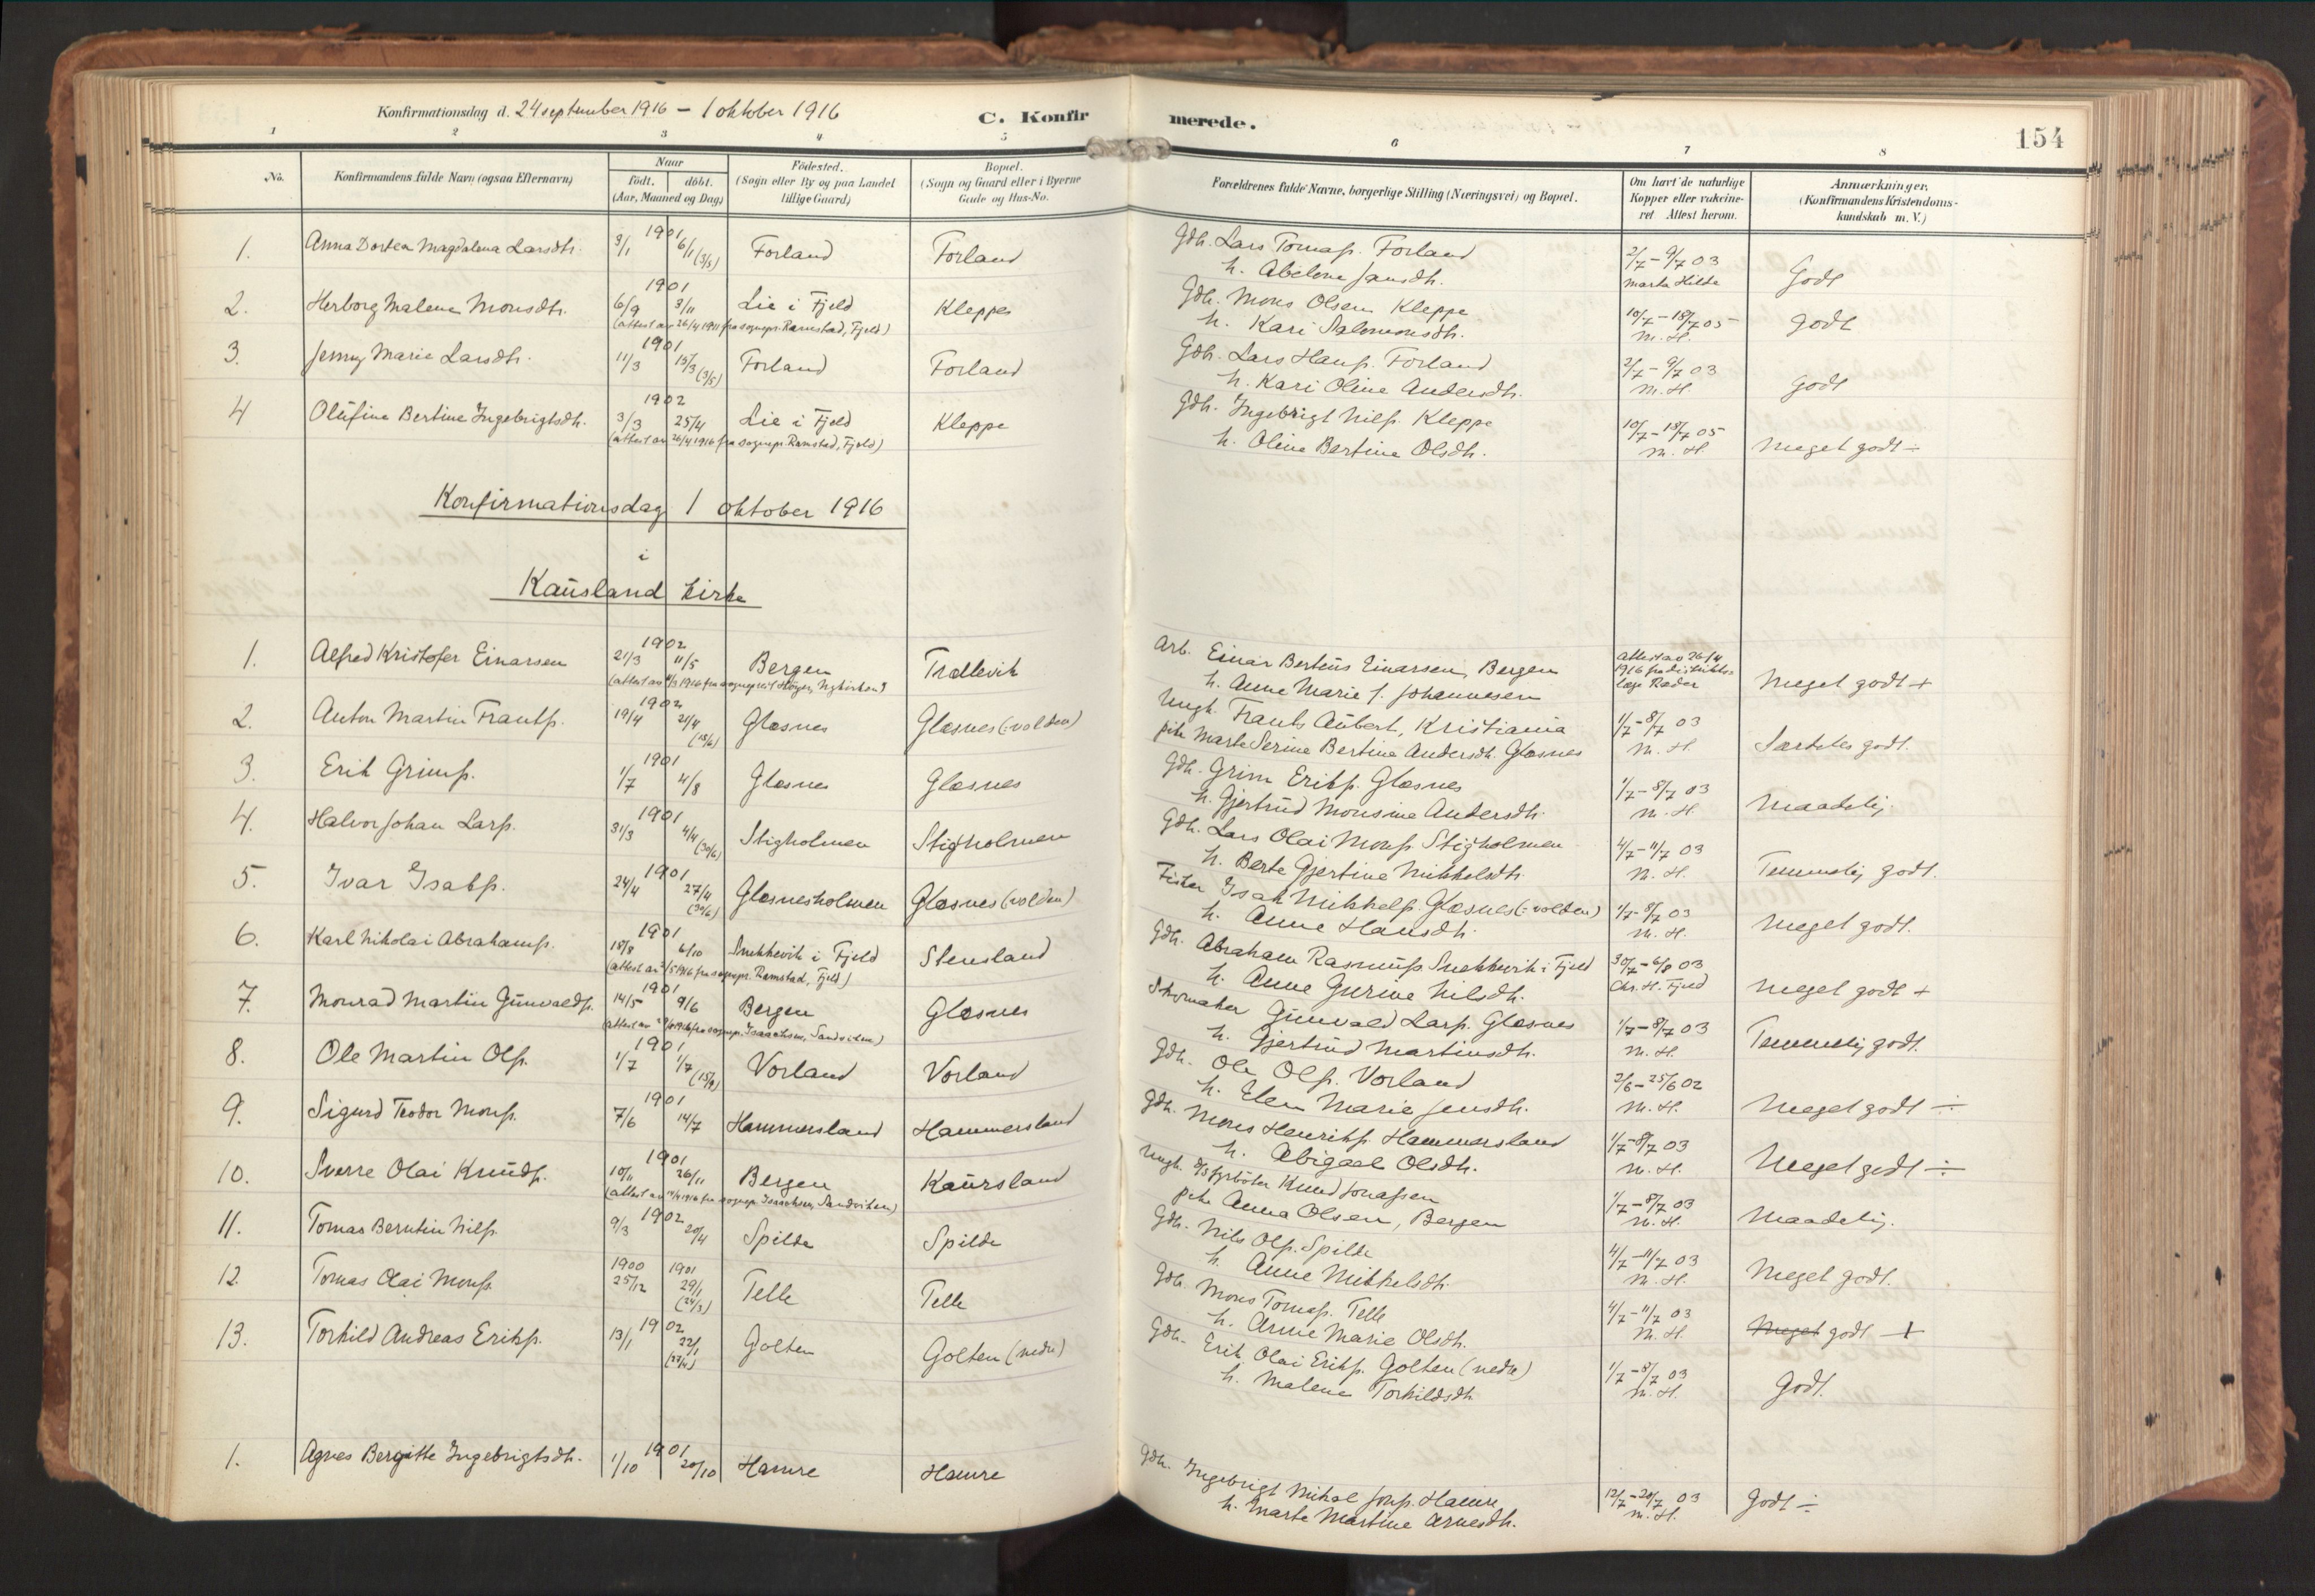 Konfirmationsdag d. 24 september 1916 – 1 oktober 1916
C. Konfirmerede.
154
1 2 3 4 5 6 7 8
No.
Konfirmandens fulde Navn (ogsaa Efternavn)
Naar
født. døbt.
(Aar, Maaned og Dag)
Fødested.
(Sogn eller By og paa Landet
tillige Gaard)
Bopæl.
(Sogn og Gaard eller i Byerne
Gade og Hus-No.
Forældrenes fulde Navne, borgerlige Stilling (Næringsvei) og Bopæl.
Om havt de naturlige
Kopper eller vakcine-
ret Attest herom.
Anmærkninger.
(Konfirmandens Kristendoms-
kundskab m. V.)
1. Anna Dortea Magdalena Larsdtr. 1901 3/1 6/1 (3/5) Forland Forland Gdb. Lars Tomass. Forland 2/7–9/7 03 Godt
h. Abelone Jansdtr. Marta Hilde
2. Herborg Malene Monsdtr. 1901 6/9 3/11 Lie i Fjeld Kleppe Gdb. Mons Olsen Kleppe 10/7–18/7 05 godt
(attest av 26/4 1911 fra sognepr. Ramstad, Fjeld) h. Kari Salomonsdtr. M. H.
3. Jenny Marie Larsdtr. 1901 11/3 15/3 (3/5) Forland Forland Gdb. Lars Hanss. Forland 2/7–9/7 03 godt
h. Kari Oline Andersdtr. M. H.
4 Olufine Bertine Ingebrigtsdtr. 1902 3/3 25/4 Lie i Fjeld Kleppe Gdb. Ingebrigt Nilss. Kleppe 10/7–18/7 05 Meget godt ÷
(attest av 26/4 1916 fra sognepr. Ramstad, Fjeld) h. Oline Bertine Olsdtr. M. H.
Konfirmationsdag 1 oktober 1916
i
Kausland kirke
1. Alfred Kristofer Einarsen 1902 21/3 11/5 Bergen Trællevik Arb. Einar Berteus Einarsen, Bergen attest av 26/4 1916 fra distrikts- læge Ræder Meget godt +
h. Anne Marie f. Johannesen
2. Anton Martin Frantss. 1902 19/4 21/4 (15/6) Glæsnes Glæsnes (:volden) Ungk. Frants Aubert, Kristiania 1/7–8/7 03 Særdeles godt.
pike Marta Serine Bertine Andersdtr. Glæsnes M. H.
3. Erik Grimss. 1901 1/7 4/8 Glæsnes Glæsnes Gdb. Grim Erikss. Glæsnes 1/7–8/7 03 Maadelig.
h. Gjertrud Monsine Andersdtr. M. H.
4. Halvor Johan Larss. 1901 31/3 4/4 (30/6) Stigholmen Stigholmen Gdb. Lars Olai Monss. Stigholmen 4/7–11/7 03 Temmelig godt.
h. Berte Gjertine Mikkelsdtr. M. H.
5. Ivar Isakss. 1901 24/4 27/4 (30/6) Glæsnesholmen Glæsnes (volden) Fisker Isak Mikkelss. Glæsnes (:volden) 1/7–8/7 03 Meget godt.
h. Anne Hansdtr. M. H.
6. Karl Nikolai Abrahamss. 1901 18/8 6/10 Snekkevik i Fjeld Stensland Gdb. Abraham Rasmuss. Snekkevik i Fjeld 30/7–6/8 03 Meget godt +
(attest av /5 1916 fra sognepr. Ramstad, Fjeld) h. Anne Gurine Nilsdtr. Chr. H. Fjeld
7. Monrad Martin Gunvaldss. 1901 14/5 9/6 Bergen Glæsnes Skomaker Gunvald Larss. Glæsnes 1/7–8/7 03 Temmelig godt.
h. Gjertrud Martinsdtr. M. H.
8. Ole Martin Olss. 1901 1/7 1/7 (15/9) Vorland Vorland Gdb. Ole Olss. Vorland 2/6–25/6 02 Meget godt ÷
h. Elen Marie Jensdtr. M. H.
9. Sigurd Teodor Monss. 1901 7/6 14/7 Hammersland Hammersland Gdb. Mons Henrikss. Hammersland 1/7–8/7 03 Meget godt ÷
h. Abigael Olsdtr. M. H.
10. Sverre Olai Knudss. 1901 10/11 26/11 Bergen Kaursland Ungk. d/s fyrbøter Knud Jonassen 1/7–8/7 03 Maadelig.
pike Anna Olsen, Bergen M. H.
11. Tomas Berntin Nilss. 1902 9/3 20/4 Spilde Spilde Gdb. Nils Olss. Spilde 4/7–11/7 03 Meget godt.
h. Anne Mikkelsdtr. M. H.
12. Tomas Olai Monss. 1900 25/12 1901 29/1 (24/3) Telle Telle Gdb. Mons Tomass. Telle 4/7–11/7 03 Meget godt +
h. Anne Marie Olsdtr. M. H.
13. Torkild Andreas Erikss. 1902 13/1 22/1 Golten Golten (nedre) Gdb. Erik Olai Erikss. Golten (nedre) 1/7–8/7 03 Godt.
h. Malene Torkildsdtr. M. H.
1. Agnes Bergitte Ingebrigtsdtr. 1901 1/10 20/10 Hamre Hamre Gdb. Ingebrigt Mikal Jonss. Hamre 12/7–20/7 03 Godt ÷
h. Marta Martine Arnesdtr. M. H.